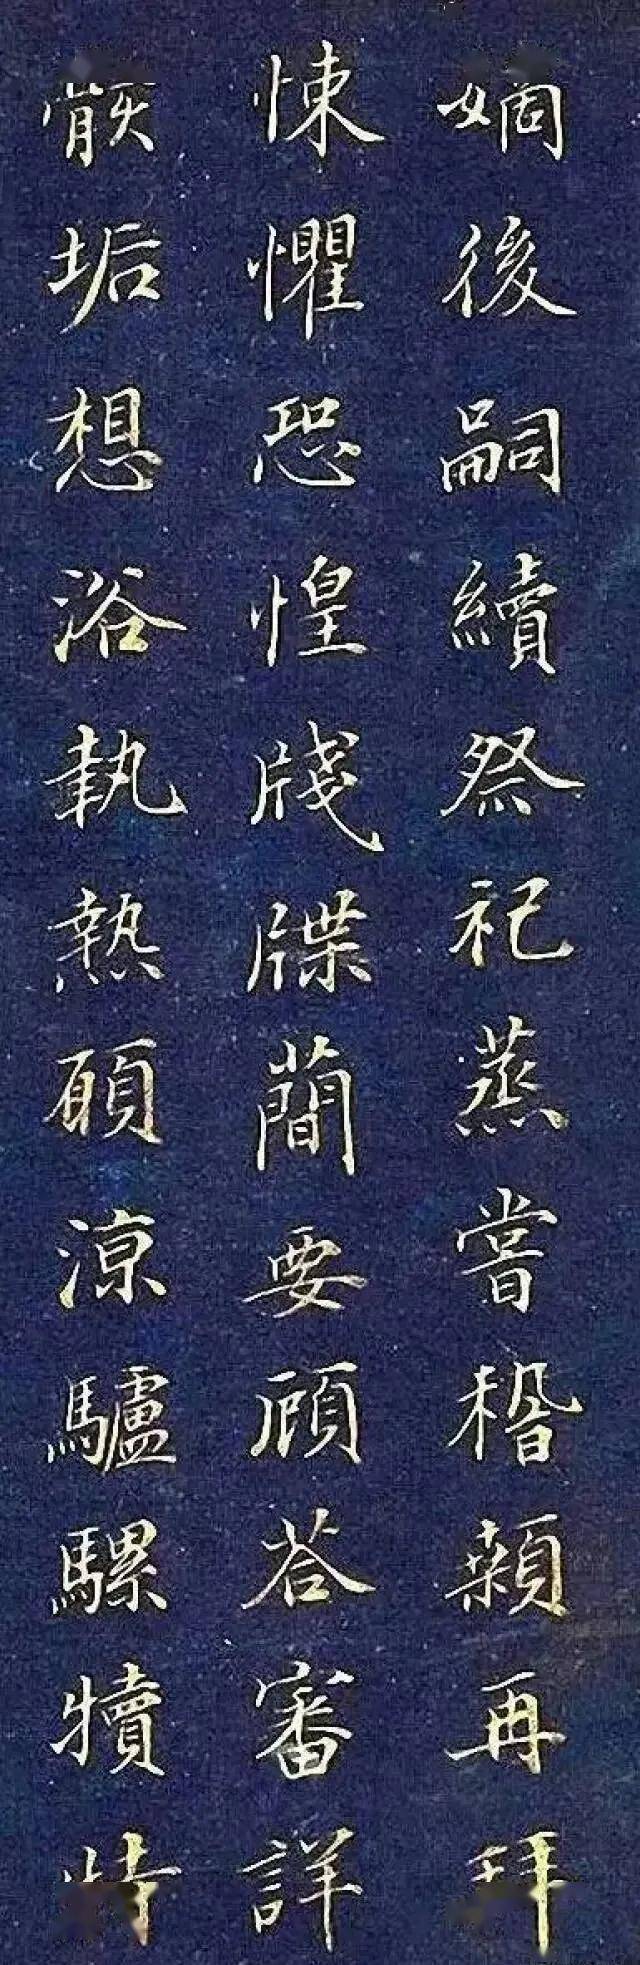 嫡後嗣續祭祀蒸嘗稽顙再拜
悚懼恐惶牋牒蕳要顧荅審詳
骸垢想浴執熱願涼驢騾犢特